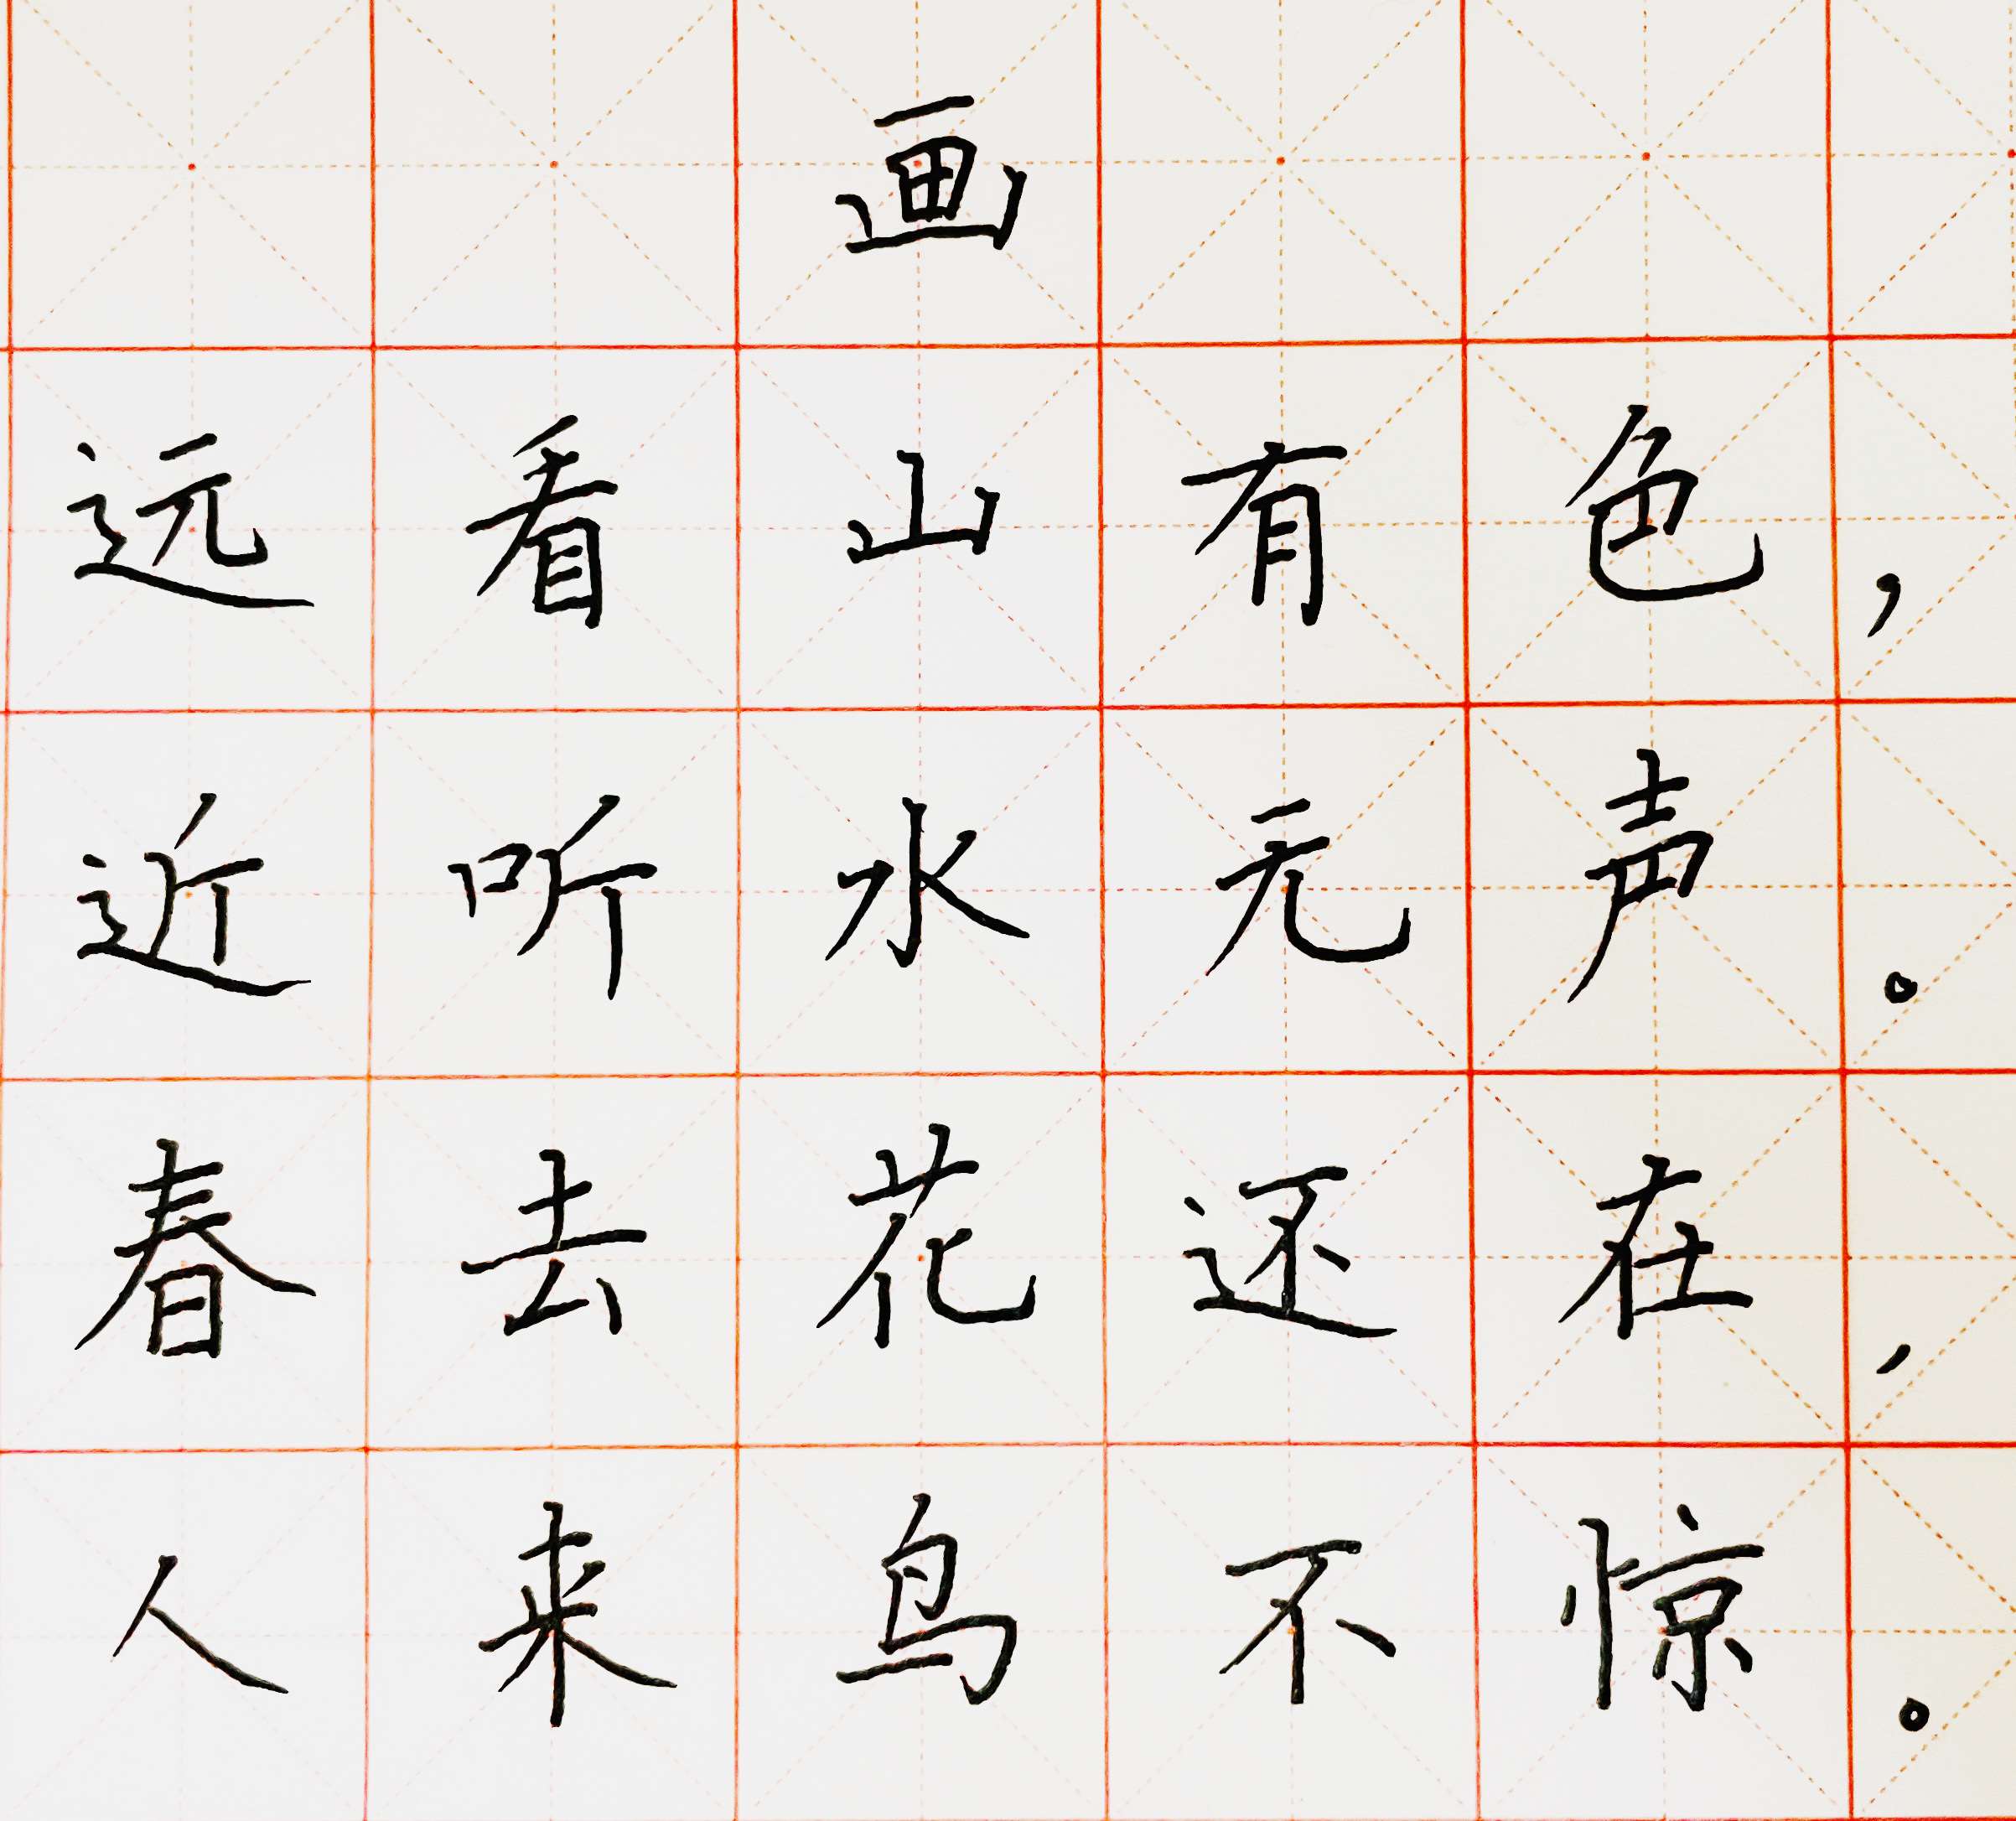 画
远看山有色，
近听水无声。
春去花还在，
人来鸟不惊。